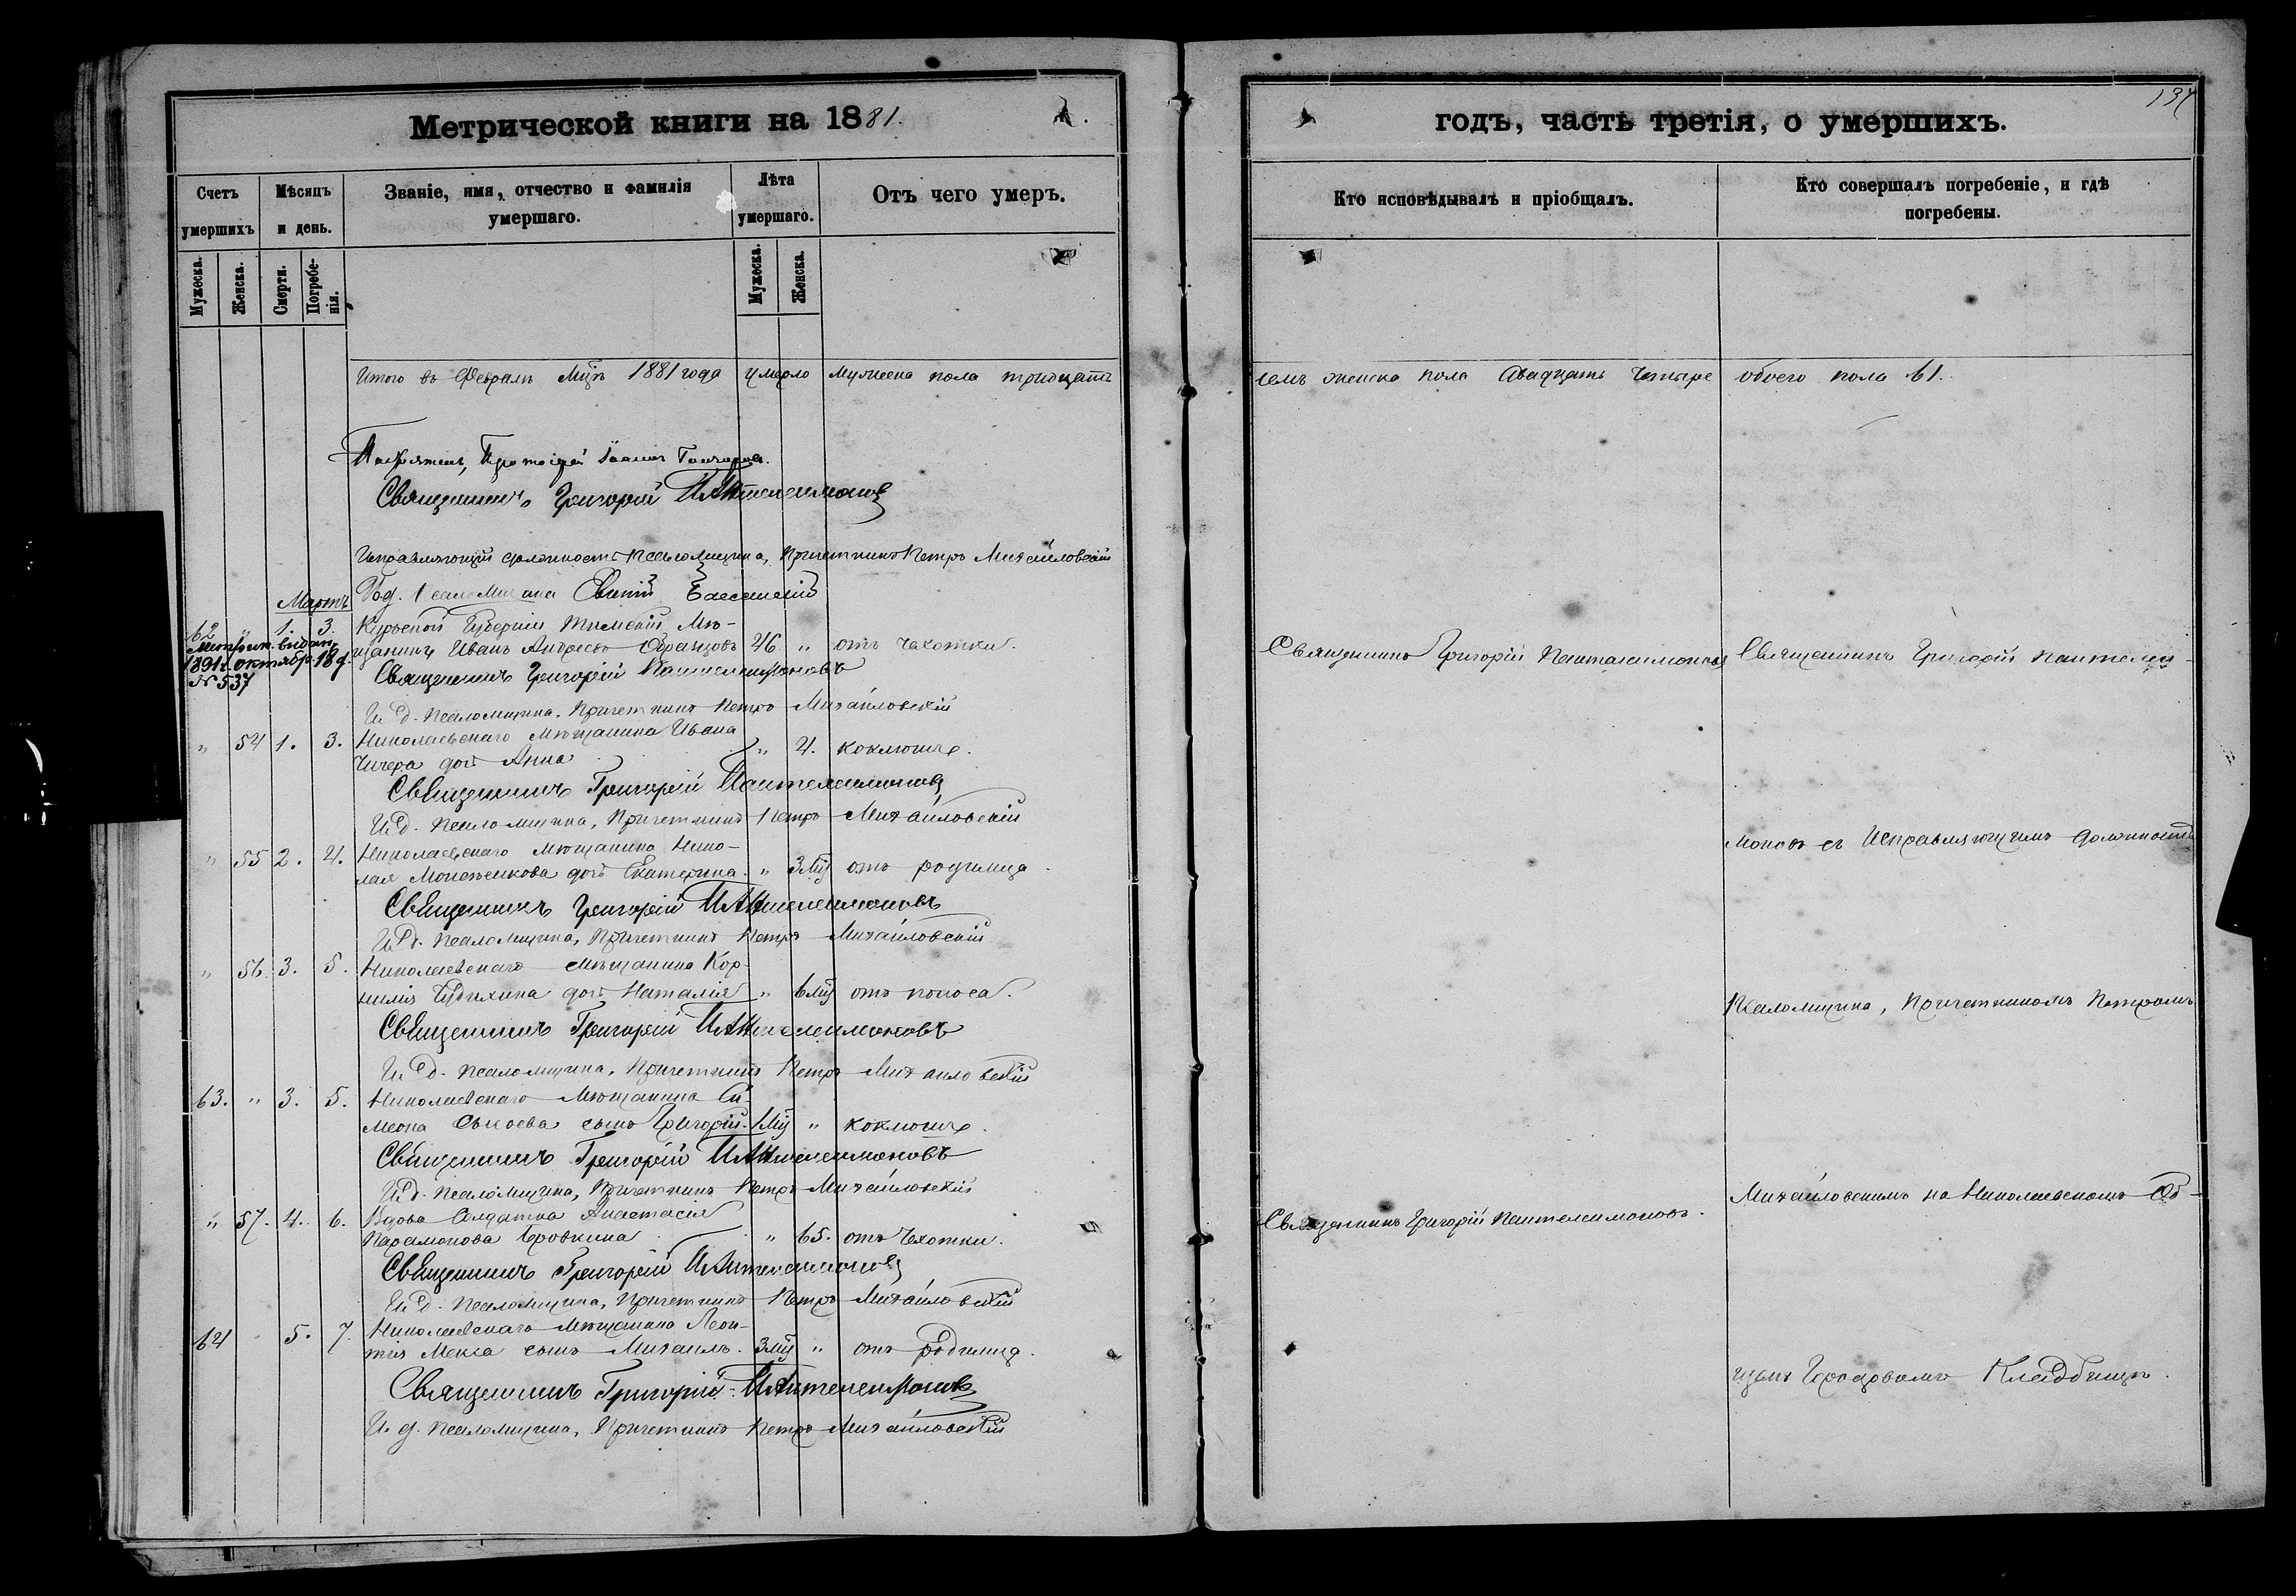 Метрической книги на 1881.
годъ, часть третія, о умершихъ.
137
Счетъ умершихъ
Мѣсяцъ и день.
Званіе, имя, отчество и фамилія умершаго.
Лѣта умершаго.
Отъ чего умеръ.
Кто исповѣдывалъ и пріобщалъ.
Кто совершалъ погребеніе, и гдѣ погребены.
Мужеска.
Женска.
Смерти.
Погребенія.
Мужеска.
Женска.
Итого въ Февралѣ Мцѣ 1881 года умерло мужеска пола тридцать
семь женска пола двадцать четыре обоего пола 61.
Протоіерей Іоаннъ
Священникъ Григорій Пантелеимоновъ
Исправляющій должность Псаломщика, Причетникъ Петръ Михайловскій
Мартъ
62 " 1. 3. Курской Губерніи Тимскій Мѣ-
щанинъ Иванъ Андреевъ 46 " отъ чахотки.
Метрик. видан. 1891 г. октябр. 18 д. № 537
Священникъ Григорій Пантелеимоновъ
Священникъ Григорій Пантелеимоновъ
Священникъ Григорій Пантелеи-
И. д. Псаломщика, Причетникъ Петръ Михайловскій
" 54 1. 3. Николаевскаго Мѣщанина Ивана
дочь Анна " 4. коклюше.
Священникъ Григорій Пантелеимоновъ
И. д. Псаломщика, Причетникъ Петръ Михайловскій
моновъ съ Исправляющимъ должность
" 55 2. 4. Николаевскаго Мѣщанина Нико-
лая дочь Екатерина. " 3 мц отъ родимца.
Священникъ Григорій Пантелеимоновъ
И. д. Псаломщика, Причетникъ Петръ Михайловскій
" 56. 3. 5. Николаевскаго Мѣщанина Кор-
нилія дочь Наталія " 6 мц отъ поноса.
Псаломщика, Причетникомъ Петромъ
Священникъ Григорій Пантелеимоновъ
И. д. Псаломщика, Причетникъ Петръ Михайловскій
63. " 3. 5. Николаевскаго Мѣщанина Си-
меона Сысоева сынъ Григорій. 1 мц " коклюше.
Священникъ Григорій Пантелеимоновъ
И. д. Псаломщика, Причетникъ Петръ Михайловскій
Михайловскимъ на Николаевскомъ Об-
" 57. 4. 6. Вдова Солдатка Анастасія
Парамонова " 65. отъ Чахотки.
Священникъ Григорій Пантелеимоновъ.
Священникъ Григорій Пантелеимоновъ
И. д. Псаломщика, Причетникъ Петръ Михайловскій
64 5. 7. Николаевскаго Мѣщанина Леон-
тія сынъ Михаилъ. 3 мц " отъ родимца.
Священникъ Григорій Пантелеимоновъ
щемъ Городовомъ Кладбищѣ.
И. д. Псаломщика, Причетникъ Петръ Михайловскій